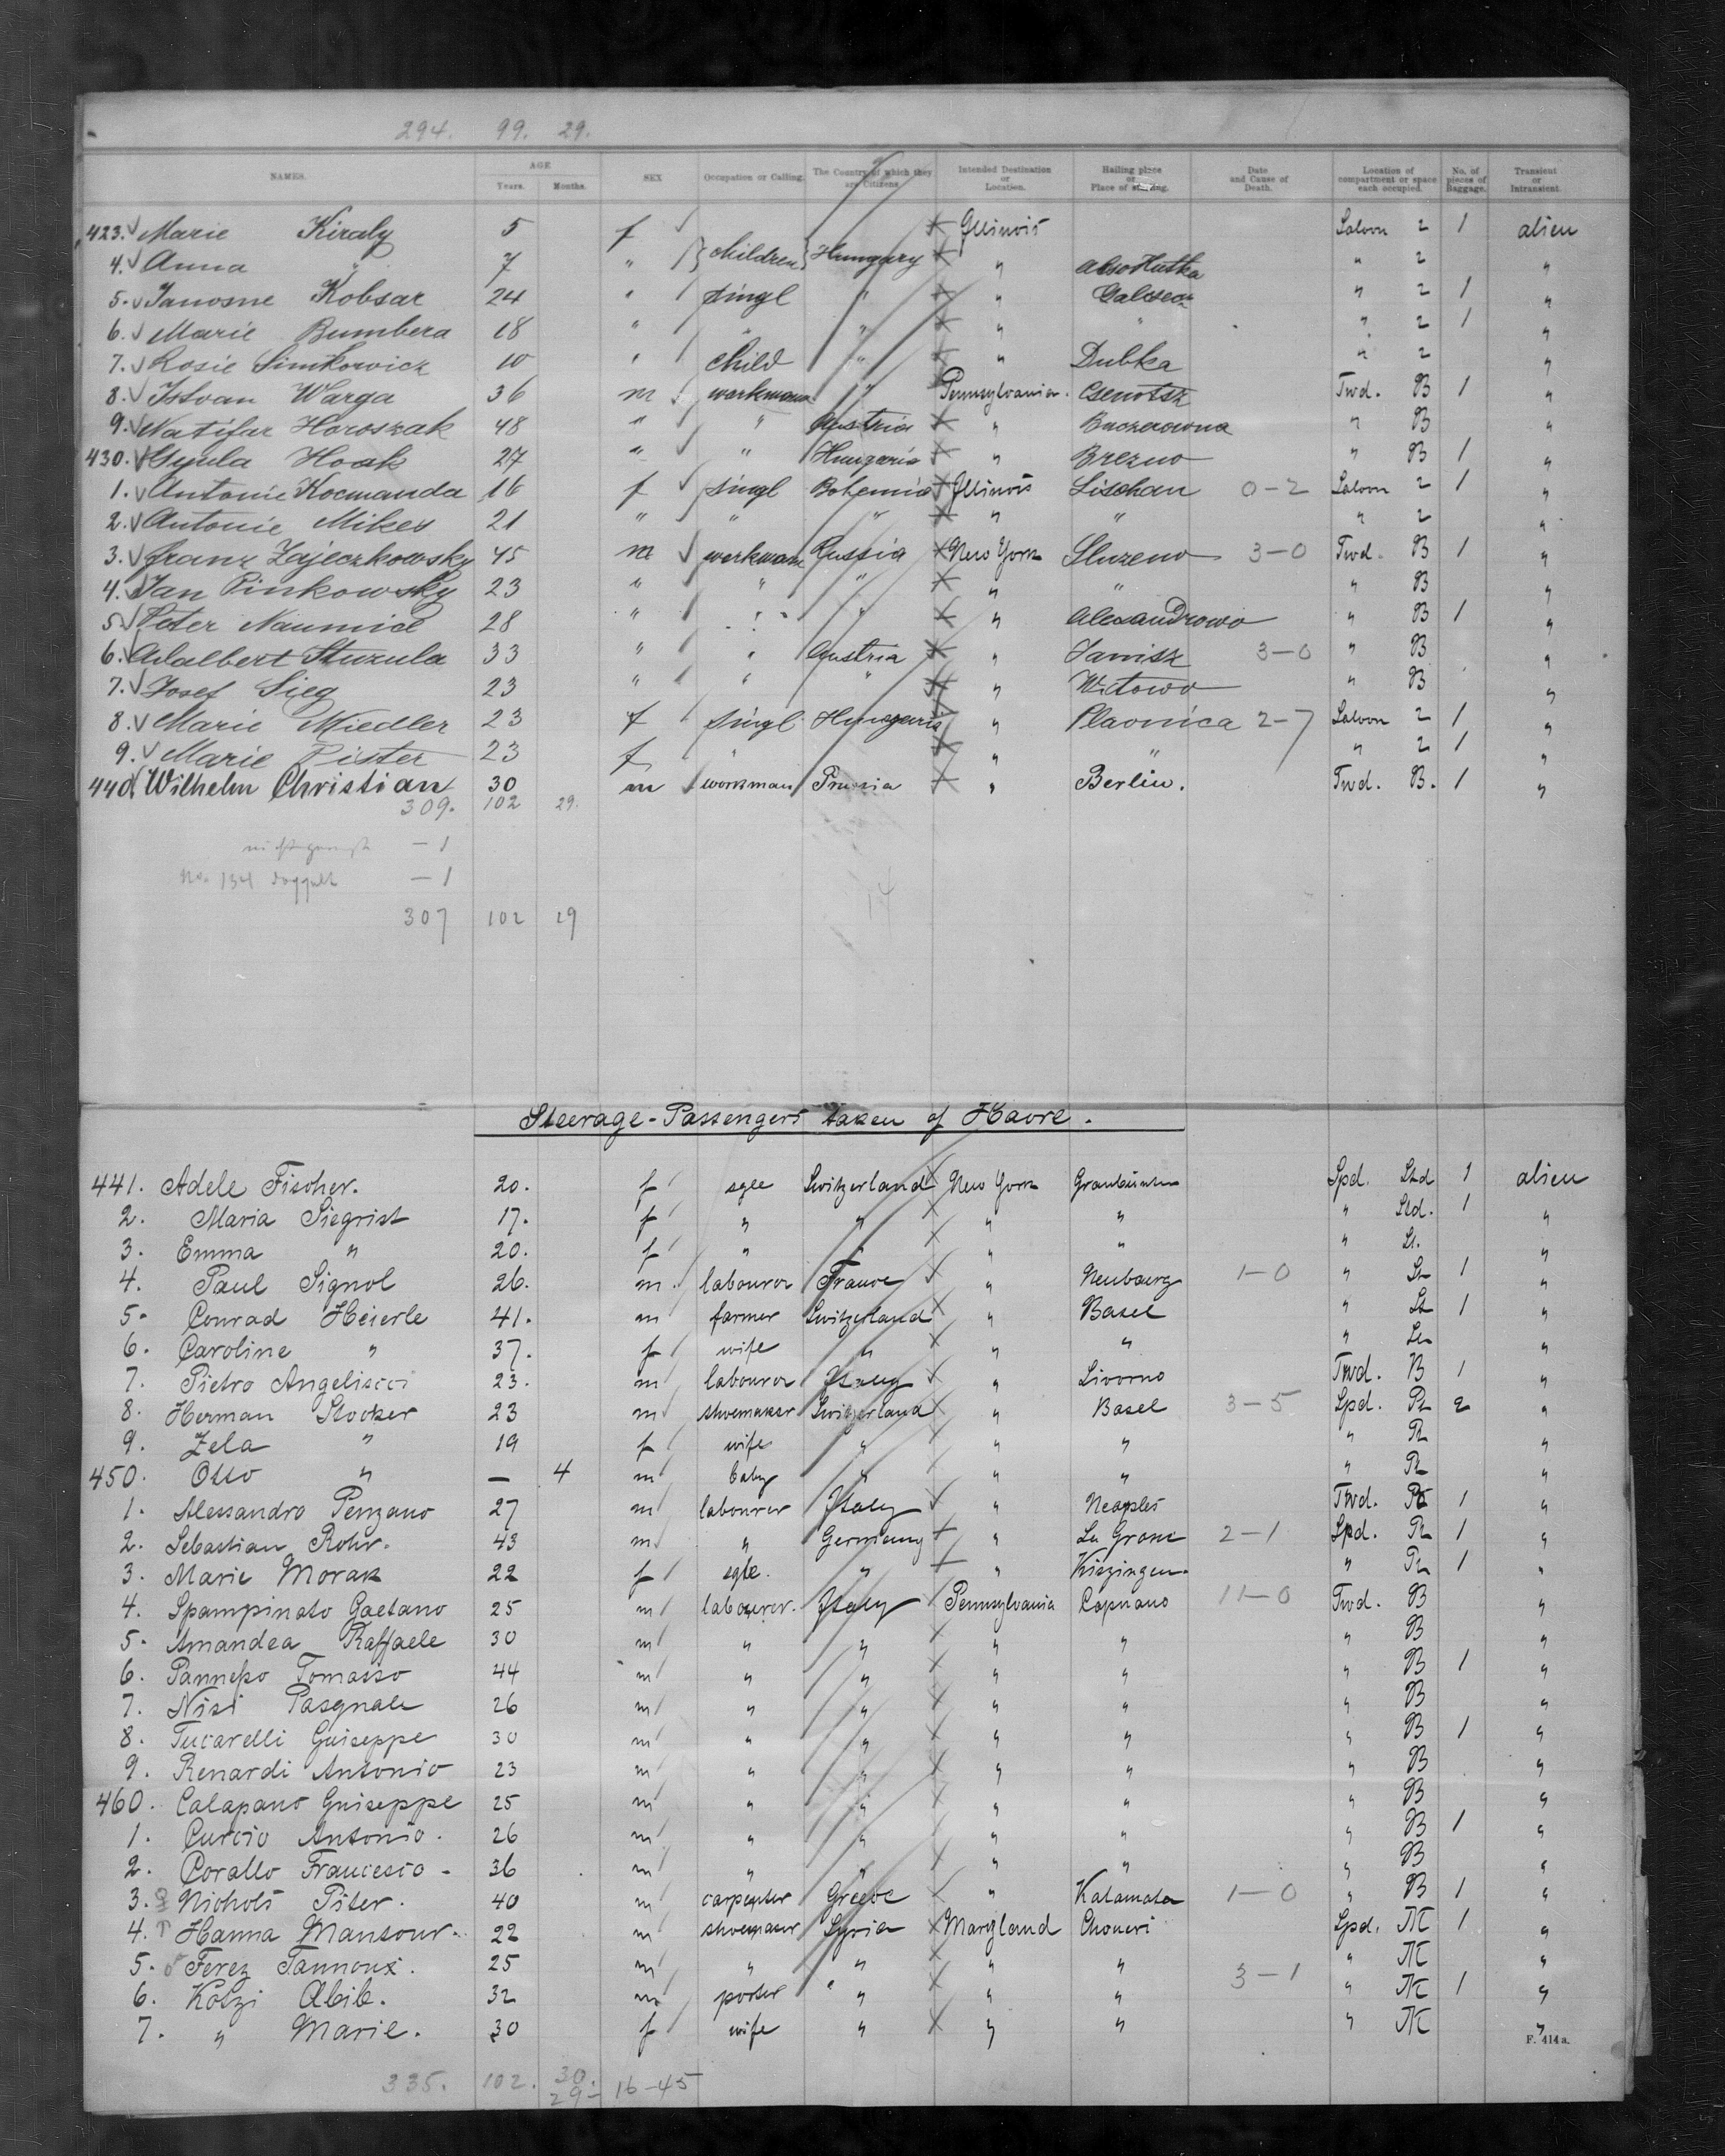 294. 99. 29.
NAMES. AGE Years. Months. SEX Occupation or Calling. The Country of which they are Citizens Intended Destination or Location. Hailing place or Place of starting. Date and Cause of Death. Location of compartment or space each occupied. No. of pieces of Baggage. Transient or Intransient.
423. Marie Kiraly 5 f Illinois Saloon 2 1 alien
4. Anna " 7 " children Hungary " " 2 "
5. Janosne Kobsar 24 " singl " " " 2 1 "
6. Marie Bumbera 18 " " " " " " 2 1 "
7. Rosie Simkowicz 10 " child " " Dubka " 2 "
8. Istvan Warga 36 m workman " Pennsylvania. Csenotsz Twd. B 1 "
9. Natifar Horoszak 48 " " Austria " " B "
430. Gyula Hook 27 " " Hungaria " Brezno " B 1 "
1. Antonie Kocmanda 16 f singl Bohemia Illinois Lischan 0-2 Saloon 2 1 "
2. Antonie Mikes 21 " " " " " " 2 "
3. Franz Zajeczkowsky 45 m workman Russia New York Sluzeno 3-0 Twd. B 1 "
4. Jan Pinkowsky 23 " " " " " " B "
5. Peter 28 " " " " Alexandrowo " B 1 "
6. Adalbert Stuzula 33 " " Austria " Janisz 3-0 " B "
7. Josef Sieg 23 " " " " Witowo " B "
8. Marie Miedler 23 f singl Hungaria " Plavnica 2-7 Saloon 2 1 "
9. Marie Pister 23 f " " " " 2 1 "
440 Wilhelm Christian 30 m workman Prussia " Berlin. Twd. B. 1 "
309. 102 29.
- 1
No. 134 doppelt - 1
307 102 29
14
Steerage-Passengers taken of Havre.
441. Adele Fischer. 20. f sgle Switzerland New York Graubünden Spd. Std 1 alien
2. Maria Siegrist 17. f " " " " " Std. 1 "
3. Emma " 20. f " " " " " St. "
4. Paul Signol 26. m. labourer France " Neubourg 1-0 " St 1 "
5. Conrad Heierle 41. m farmer Switzerland " Basel " St 1 "
6. Caroline " 37. f wife " " " " St "
7. Pietro 23. m labourer Italy " Livorno Twd. B 1 "
8. Herman Stocker 23 m shoemaker Switzerland " Basel 3-5 Spd. 2 "
9. Zela " 19 f wife " " " " "
450. Otto " — 4 m baby " " " " "
1. Alessandro Penzano 27 m labourer Italy " Neaples Twd. 1 "
2. Sebastian Rohr. 43 m " Germany " 2-1 Spd. 1 "
3. Marie Morak 22 f sgle. " " Kiszingen. " 1 "
4. Spampinato Gaetano 25 m labourer. Italy Pennsylvania Capuano 11-0 Twd. B "
5. Amandea Raffaele 30 m " " " " " B "
6. Pannepo Tomasso 44 m " " " " " B 1 "
7. Nisi Pasquale 26 m " " " " " B "
8. Tucarelli Guiseppe 30 m " " " " " B 1 "
9. Renardi Antonio 23 m " " " " " B "
460. Calapano Guiseppe 25 m " " " " " B "
1. Curcio Antonio. 26 m " " " " " B 1 "
2. Corallo Francesco - 36 m " " " " " B "
3. Nichols Piter. 40 m carpenter Greece " Kalamata 1-0 " B 1 "
4. Hanna Mansour. 22 m shoemaker Syria Maryland Choueri Spd. 1 "
5. Ferez Tannous. 25 m " " " " 3-1 " "
6. Kotzi Abib. 32 m porter " " " " 1 "
7. " Marie. 30 f wife " " " " "
F. 414a.
335. 102. 30. 16-45
29-